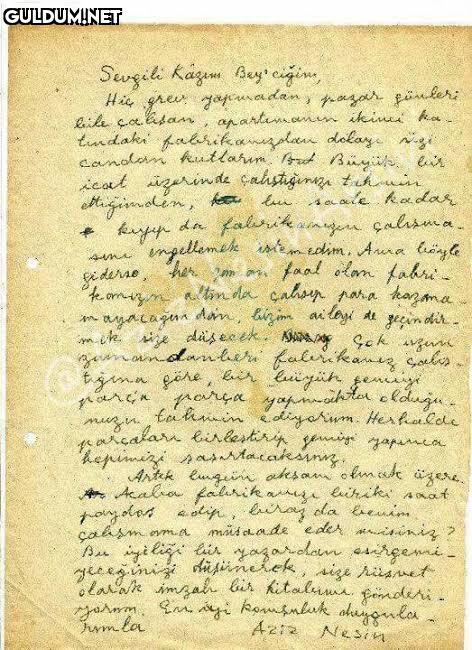 GULDUM.NET
Sevgili Kâzım Bey'ciğim,
Hiç grev yapmadan, pazar günleri
bile çalışan, apartımanın ikinci ka-
tındaki fabrikanızdan dolayı sizi
candan kutlarım. Büyük bir
icat üzerinde çalıştığınızı tahmin
ettiğimden, bu saate kadar
kıyıp da fabrikanızın çalışma-
sını engellemek istemedim. Ama böyle
giderse, her zaman faal olan fabri-
kanızın altında çalışıp para kazana-
mayacağımdan, bizim aileyi de geçindir-
mek size düşecek. Çok uzun
zamandanberi fabrikanız çalış-
tığına göre, bir büyük gemiyi
parça parça yapmakta olduğu-
nuzu tahmin ediyorum. Herhalde
parçaları birleştirip gemiyi yapınca
hepimizi şaşırtacaksınız.
Artık bugün akşam olmak üzere.
Acaba fabrikanızı biriki saat
paydos edip, biraz da benim
çalışmama müsaade eder misiniz?
Bu iyiliği bir yazardan esirgemi-
yeceğinizi düşünerek, size rüşvet
olarak imzalı bir kitabımı gönderi-
yorum. En iyi komşuluk duygula-
rımla
Aziz Nesin